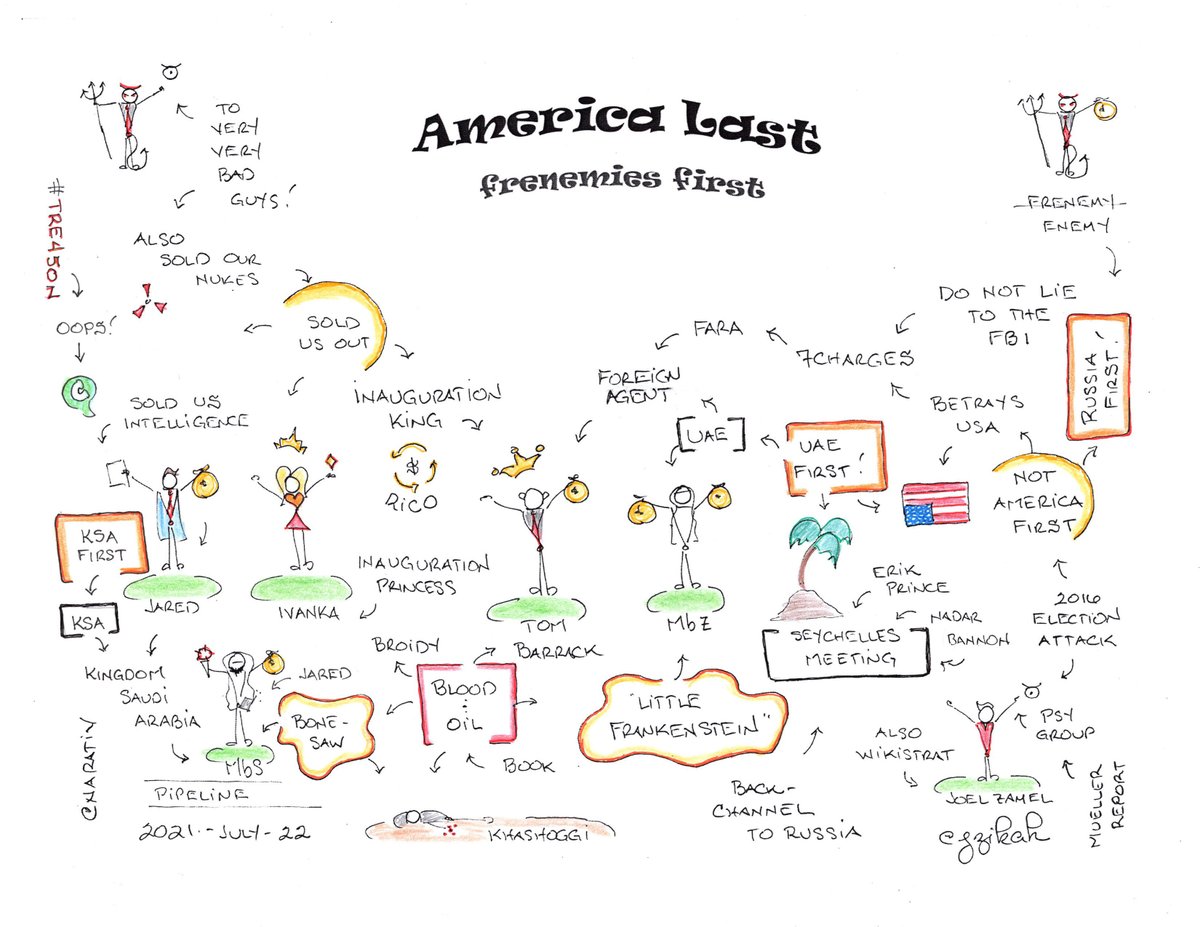 America Last
frenemies first
TO
VERY
VERY
BAD
GUYS!
#TRE45ON
ALSO
SOLD OUR
NUKES
OOPS!
SOLD
US OUT
SOLD US
INTELLIGENCE
INAUGURATION
KING
$
RICO
FOREIGN
AGENT
FARA
7CHARGES
DO NOT LIE
TO THE
FBI
FRENEMY
ENEMY
RUSSIA
FIRST!
BETRAYS
USA
NOT
AMERICA
FIRST
UAE
UAE
FIRST!
KSA
FIRST
KSA
JARED
IVANKA
INAUGURATION
PRINCESS
TOM
MbZ
ERIK
PRINCE
NADAR
BANNON
SEYCHELLES
MEETING
2016
ELECTION
ATTACK
KINGDOM
SAUDI
ARABIA
JARED
BONE-
SAW
MbS
BROIDY
BARRACK
BLOOD
OIL
BOOK
"LITTLE
FRANKENSTEIN"
ALSO
WIKISTRAT
PSY
GROUP
JOEL ZAMEL
MUELLER
REPORT
BACK-
CHANNEL
TO RUSSIA
@NARATIV
PIPELINE
2021-JULY-22
KHASHOGGI
@gzikah